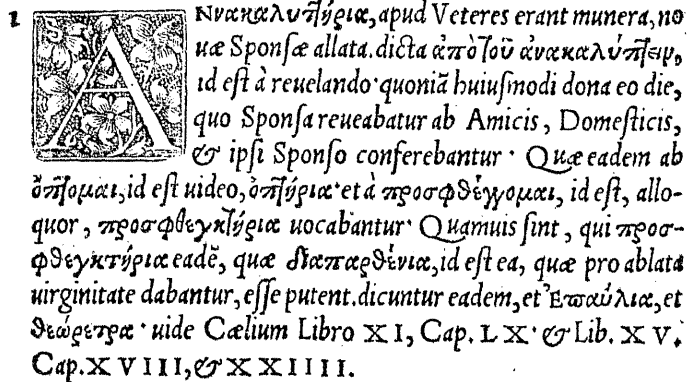 1 ANνακαλυπτήρια, apud Veteres erant munera, no
uæ Sponſæ allata. dicta ἀπὸ τοῦ ἀνακαλύπτειν,
id eſt à reuelando· quoniã huiuſmodi dona eo die,
quo Sponſa reueabatur ab Amicis, Domeſticis,
& ipſi Sponſo conferebantur· Quæ eadem ab
ὄπτομαι, id eſt uideo, ὀπτήρια· et à προσφθέγγομαι, id eſt, allo-
quor, προσφθεγκτήρια uocabantur· Quamuis ſint, qui προσ-
φθεγκτήρια eadẽ, quæ διαπαρθένια, id eſt ea, quæ pro ablata
uirginitate dabantur, eſſe putent. dicuntur eadem, et Ἐπαύλια, et
θεώρετρα· uide Cælium Libro XI, Cap. LX· & Lib. XV.
Cap. XVIII, & XXIIII.